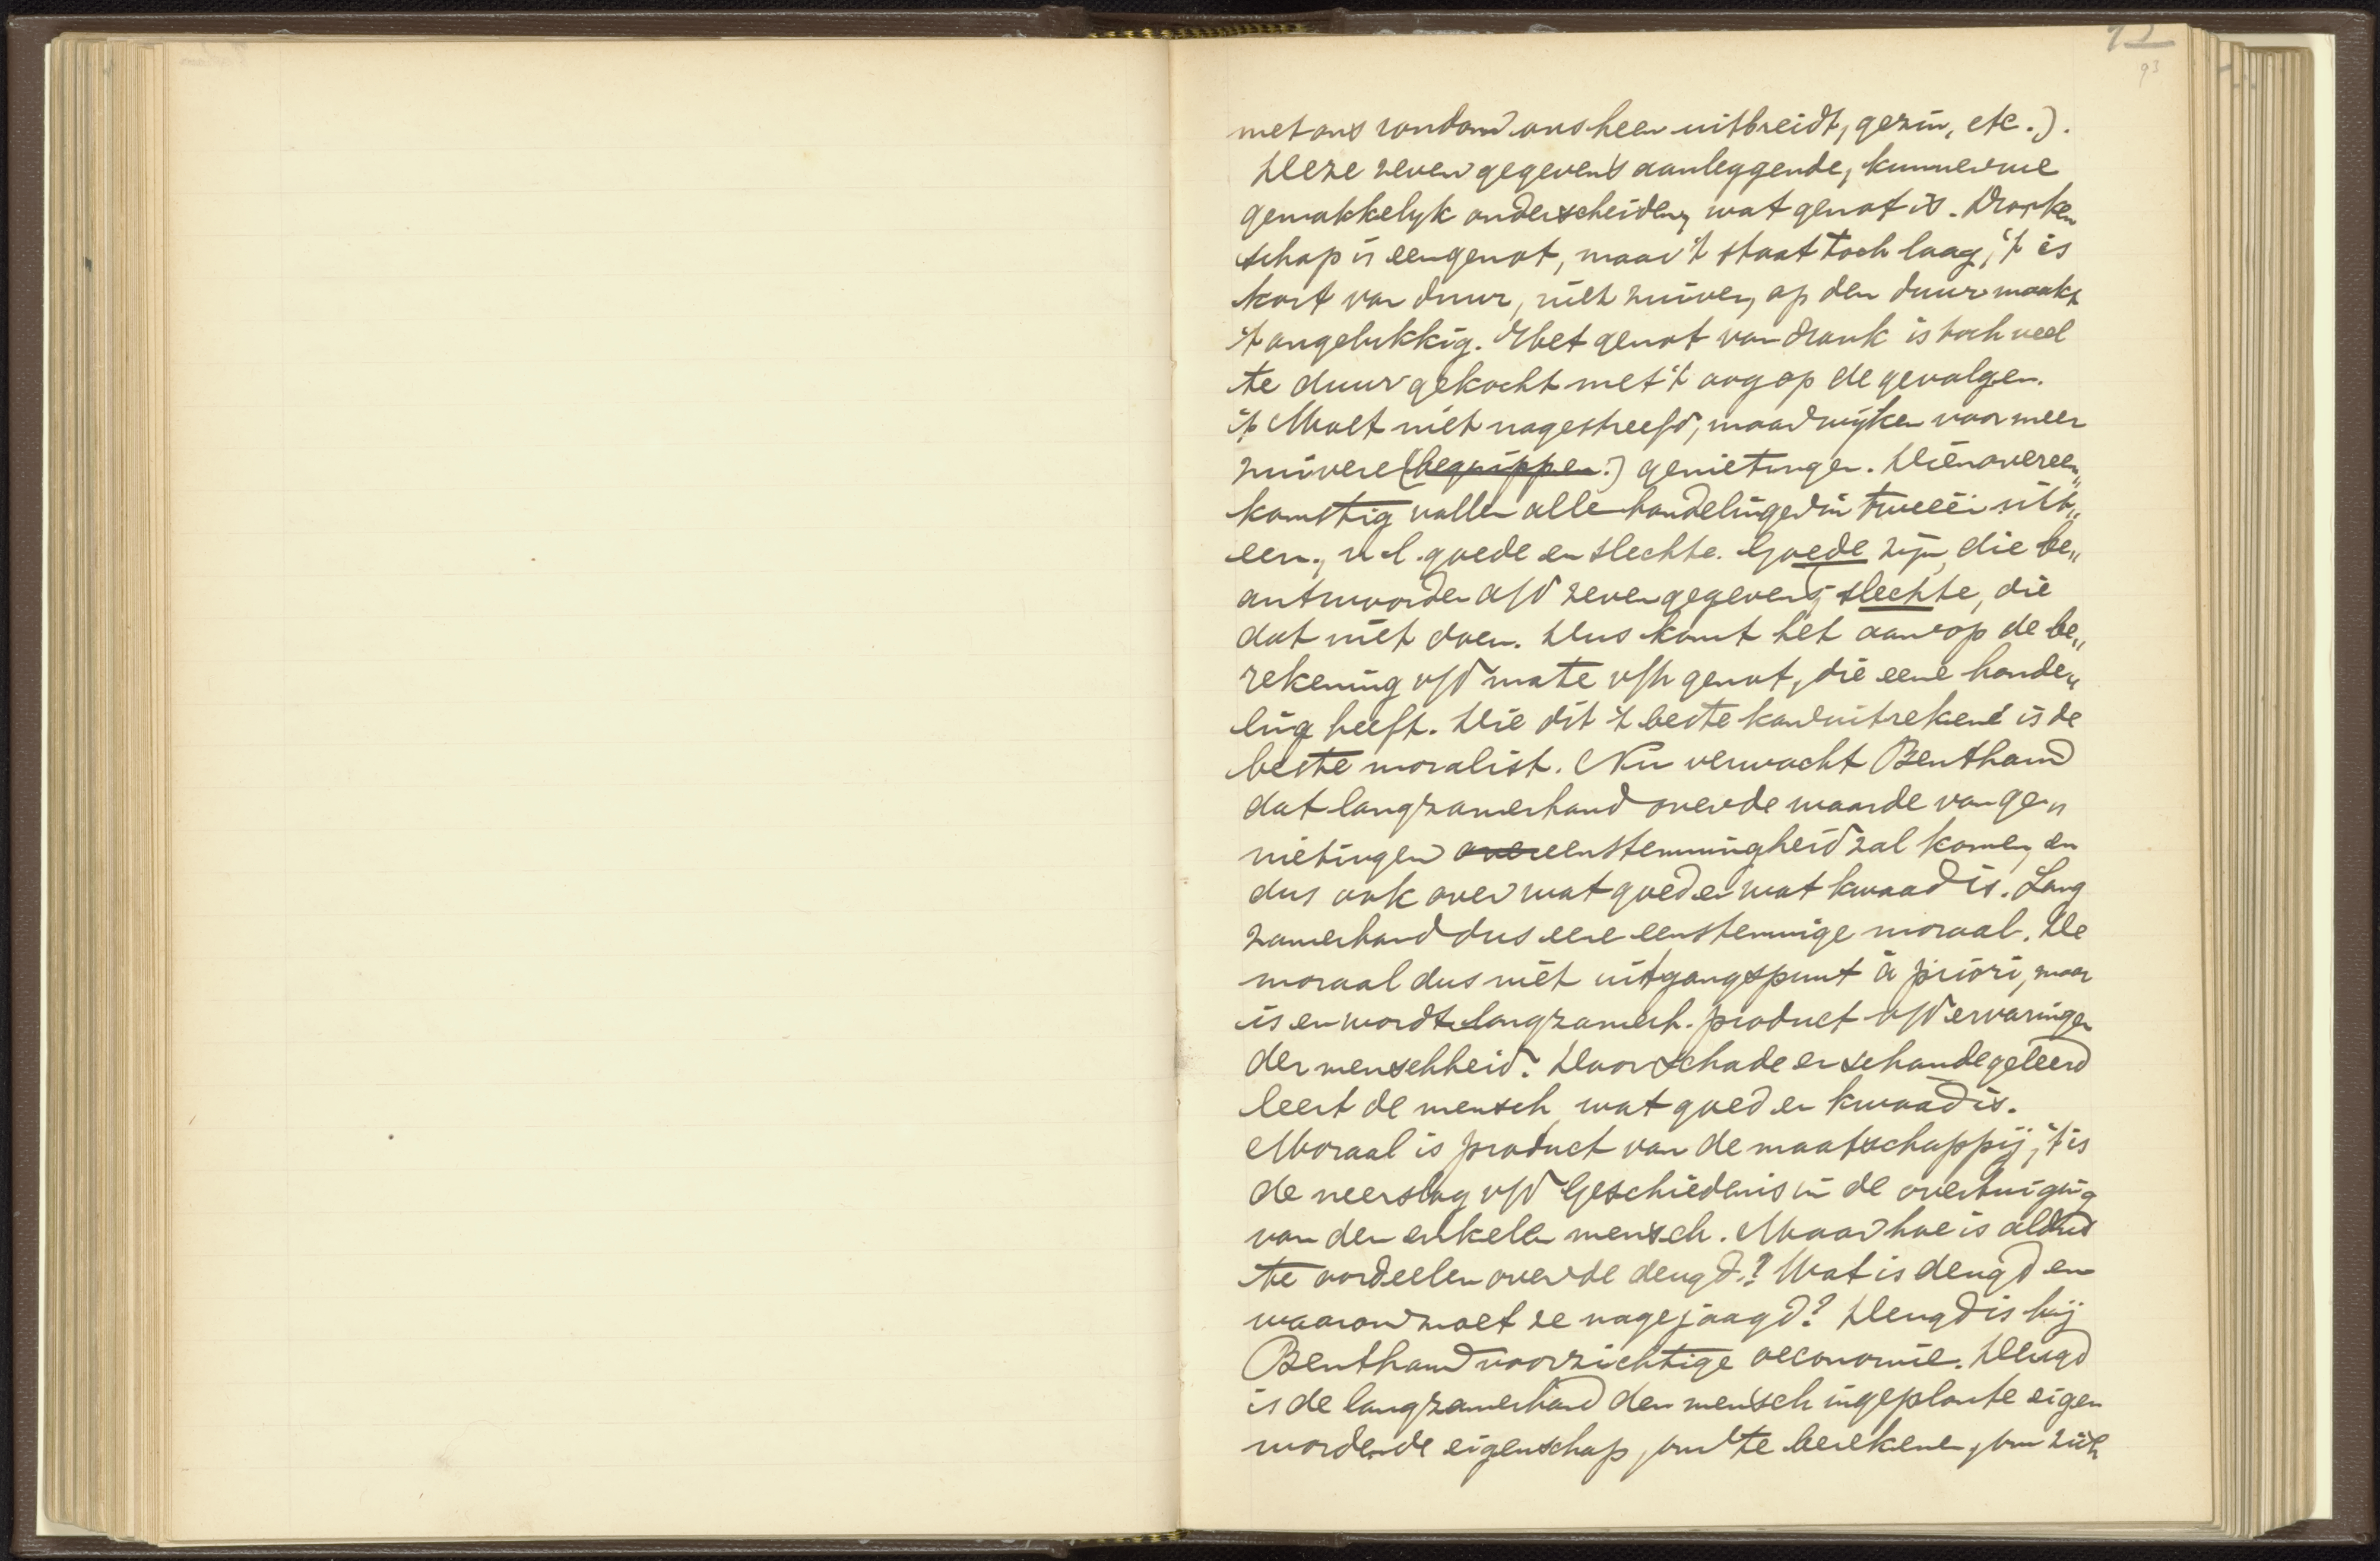 93
met ons rondom ons heen uitbreidt, gezin, etc.).
Deze zeven gegevens aanleggende, kunnen we
gemakkelyk onderscheiden, wat genot is. Dronken
schap is een genot, maar 't staat toch laag, 't is
kort van duur, niet zuiver, op den duur maakt
't ongelukkig. Het genot van drank is toch veel
te duur gekocht met 't oog op de gevolgen.
't Moet niet nagestreefd, maar wijken voor meer
zuivere (begrippen.) genietingen. Dienovereen„
komstig vallen alle handelingen in tweeën uit„
een, n.l. goede en slechte. Goede zijn, die be„
antwoorden a/d zeven gegevens, slechte, die
dat niet doen. Dus komt het aan op de be„
rekening v/d mate v/h genot, die eene hande„
ling heeft. Wie dit 't beste kan uitrekene is de
beste moralist. Nu verwacht Bentham
dat langzamerhand over de waarde van ge„
nietingen overeenstemmigheid zal komen, en
dus ook over wat goed en wat kwaad is. Lang
zamerhand dus eene eenstemmige moraal. De
moraal dus niet uitgangspunt à priori, maar
is en wordt langzamerh. product v/d ervaringen
der menschheid. Door schade en schande geleerd
leert de mensch, wat goed en kwaad is.
Moraal is product van de maatschappij, 't is
de neerslag v/d Geschiedenis in de overtuiging
van den enkelen mensch. Maar hoe is aldus
te oordeelen over de deugd? Wat is deugd en
waarom moet ze nagejaagd? Deugd is bij
Bentham voorzichtige oeconomie. Deugd
is de langzamerhand den mensch ingeplante eigen
wordende eigenschap, om te berekenen, om zich